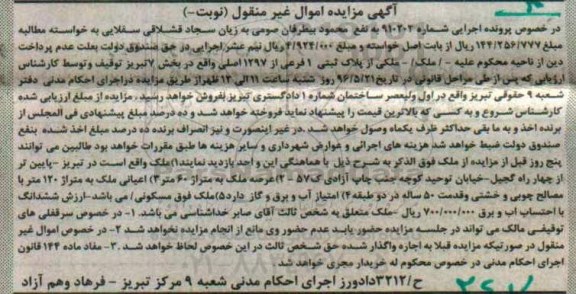 آگهی مزایده اموال غیر منقول (نوبت-)
در خصوص پرونده اجرایی شماره ۹۱۰۲۰۲ به نفع محمود بیطرفان صومی به زیان سجاد قشلاقی سفلایی به خواسته مطالبه
مبلغ ۱۴۴/۲۵۶/۷۷۷ ریال از بابت اصل خواسته و مبلغ ۴/۹۲۴/۰۰۰ ریال نیم عشر اجرایی در حق صندوق دولت بعلت عدم پرداخت
دین از ناحیه محکوم علیه - / ملک/ - ملکی از پلاک ثبتی ۱ فرعی از ۱۲۹۷ اصلی واقع در بخش ۷ تبریز توقیف و توسط کارشناس
ارزیابی که پس از طی مراحل قانونی در تاریخ ۹۶/۵/۲۱ روز شنبه ساعت ۱۱ الی ۱۲ ظهر از طریق مزایده در اجرای احکام مدنی دفتر
شعبه ۹ حقوقی تبریز واقع در اول ولیعصر ساختمان شماره ۱ دادگستری تبریز بفروش خواهد رسید. مزایده از مبلغ ارزیابی شده
کارشناس شروع و به کسی که بالاترین قیمت را پیشنهاد نماید فروخته خواهد شد و ده درصد مبلغ پیشنهادی فی المجلس از
برنده اخذ و به ما بقی حداکثر ظرف یکماه وصول خواهد شد .در غیر اینصورت و نیز انصراف برنده ده درصد مبلغ اخذ شده بنفع
صندوق دولت ضبط خواهد شد هزینه های اجرائی و عوارض شهرداری و سایر هزینه ها طبق مقررات خواهد بود طالبین می توانند
پنج روز قبل از مزایده از ملک فوق الذکر به شرح ذیل با هماهنگی این واحد بازدید نمایند۱) ملک واقع است در تبریز -پایین تر
از چهار راه گجیل-خیابان توحید کوچه جنب چاپ آزادی ک ۵۷۰ ۲) عرصه ملک به متراژ ۶۰ متر ۳) اعیانی ملک به متراژ ۱۲۰ متر با
مصالح چوبی و خشتی وقدمت ۵۰ ساله در دو طبقه ۴) امتیاز آب و برق و گاز دارد۵)ملک فوق مسکونی/ می باشد-ارزش ششدانگ
با احتساب آب و برق ۷۰۰/۰۰۰/۰۰۰ ریال -ملک متعلق به شخص ثالث آقای صابر خداشناسی می باشد. ۱- در خصوص سرقفلی های
توقیفی مالک می تواند در جلسه مزایده حضور یابد عدم حضور وی مانع از انجام مزایده نخواهد شد ۲- در خصوص اموال غیر
منقول در صورتیکه مزایده قبلا به اجاره واگذار شده حق شخص ثالث در این خصوص لحاظ خواهد شد .۳- مفاد ماده ۱۴۴ قانون
اجرای احکام مدنی در خصوص محکوم له خریدار مجری خواهد شد
ح/۳۲۱۲ دادورز اجرای احکام مدنی شعبه ۹ مرکز تبریز - فرهاد وهم آزاد